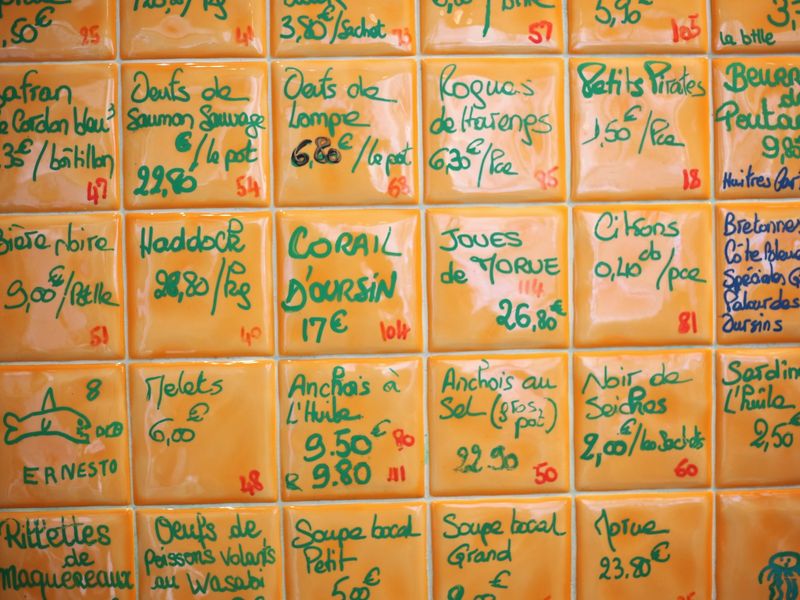 ,50€ 25
41
3,80€/Sachet 73
57
5,90€ 105
la bille
Safran
Le Cordon bleu
,35€/bâtillon
47
Oeufs de
Saumon Sauvage
€/le pot
22,80 54
Oeufs de
Lompe
6,80€/le pot
68
Rogues
de Harengs
6,30€/Pce
85
Petits Pirates
1,50€/Pce
18
Beurre
du
9,8
Huitres
Bière Noire
9,00€/Btlle
51
Haddock
28,80/Kg
40
CORAIL
D'OURSIN
17€ 104
JOUES
de MORUE
114
26,80€
Citrons
0,40 /pce
81
Bretonnes
Côte Bleue
Spéciales G
Palourdes
Oursins
8
ERNESTO
Melets
6,00€
48
Anchois à
L'Huile
9.50€ 80
R 9.80 111
Anchois au
Sel (gros
pot)
22.90 50
Noir de
Seiches
2,00€/les Sachets
60
Sardin
L'Huile
2,50€
Rillettes
de
Maquereaux
Oeufs de
Poissons Volants
au Wasabi
Soupe bocal
Petit
5,00€
Soupe bocal
Grand
€
Morue
23,80€